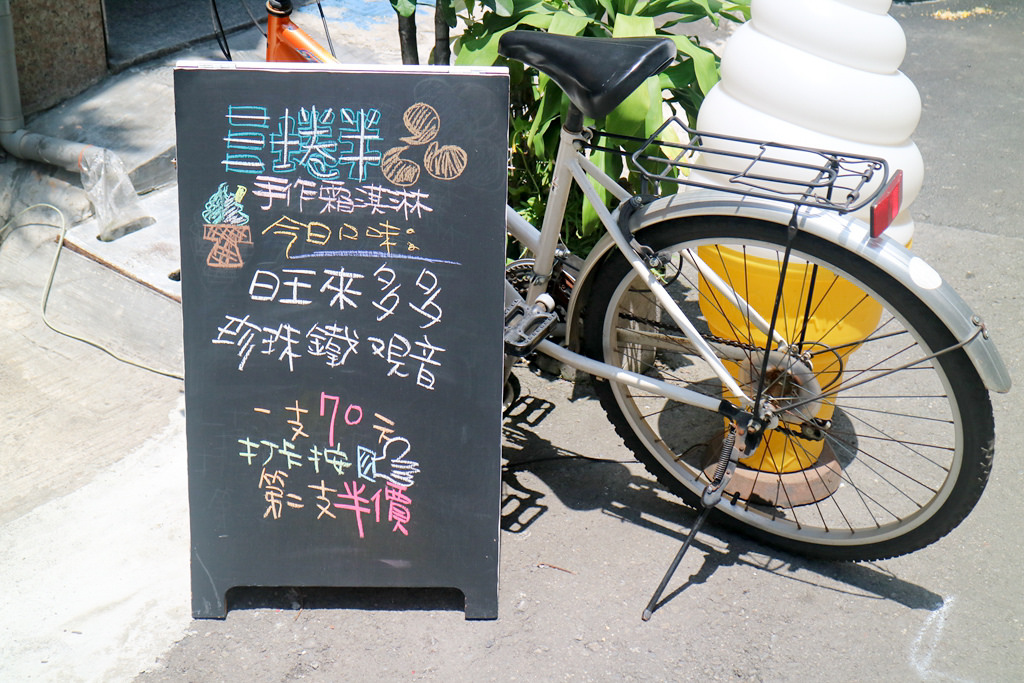 三捲半
手作霜淇淋
今日口味:
旺來多多
珍珠鐵觀音
一支70元
打卡按
第二支半價